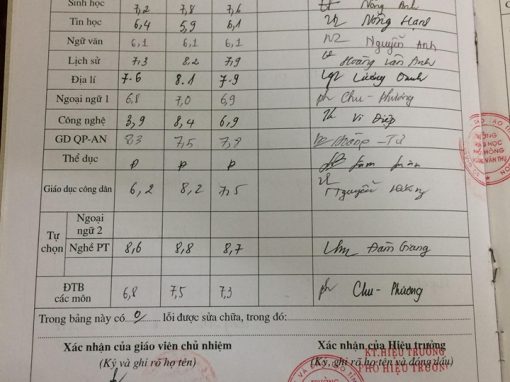 Sinh học 7,2 7,8 7,6 Nông Anh
Tin học 6,4 5,9 6,1 Nông Hạnh
Ngữ văn 6,1 6,1 6,1 Nguyễn Anh
Lịch sử 7,3 8,2 7,9 Hoàng Vân Anh
Địa lí 7.6 8.1 7.9 Lương Oanh
Ngoại ngữ 1 6,8 7,0 6,9 Chu - Phương
Công nghệ 3,9 8,4 6,9 Vi Điệp
GD QP-AN 8,3 7,5 7,9
Thể dục Đ Đ Đ
Giáo dục công dân 6,2 8,2 7,5 Nguyễn
Tự chọn
Ngoại ngữ 2
Nghề PT 8,6 8,8 8,7 Đàm Giang
ĐTB các môn 6,8 7,5 7,3 Chu - Phương
Trong bảng này có 0 lỗi được sửa chữa, trong đó:
Xác nhận của giáo viên chủ nhiệm Xác nhận của Hiệu trưởng
(Ký và ghi rõ họ tên) (Ký, ghi rõ họ tên và đóng dấu)
KT.HIỆU TRƯỞNG
PHÓ HIỆU TRƯỞNG